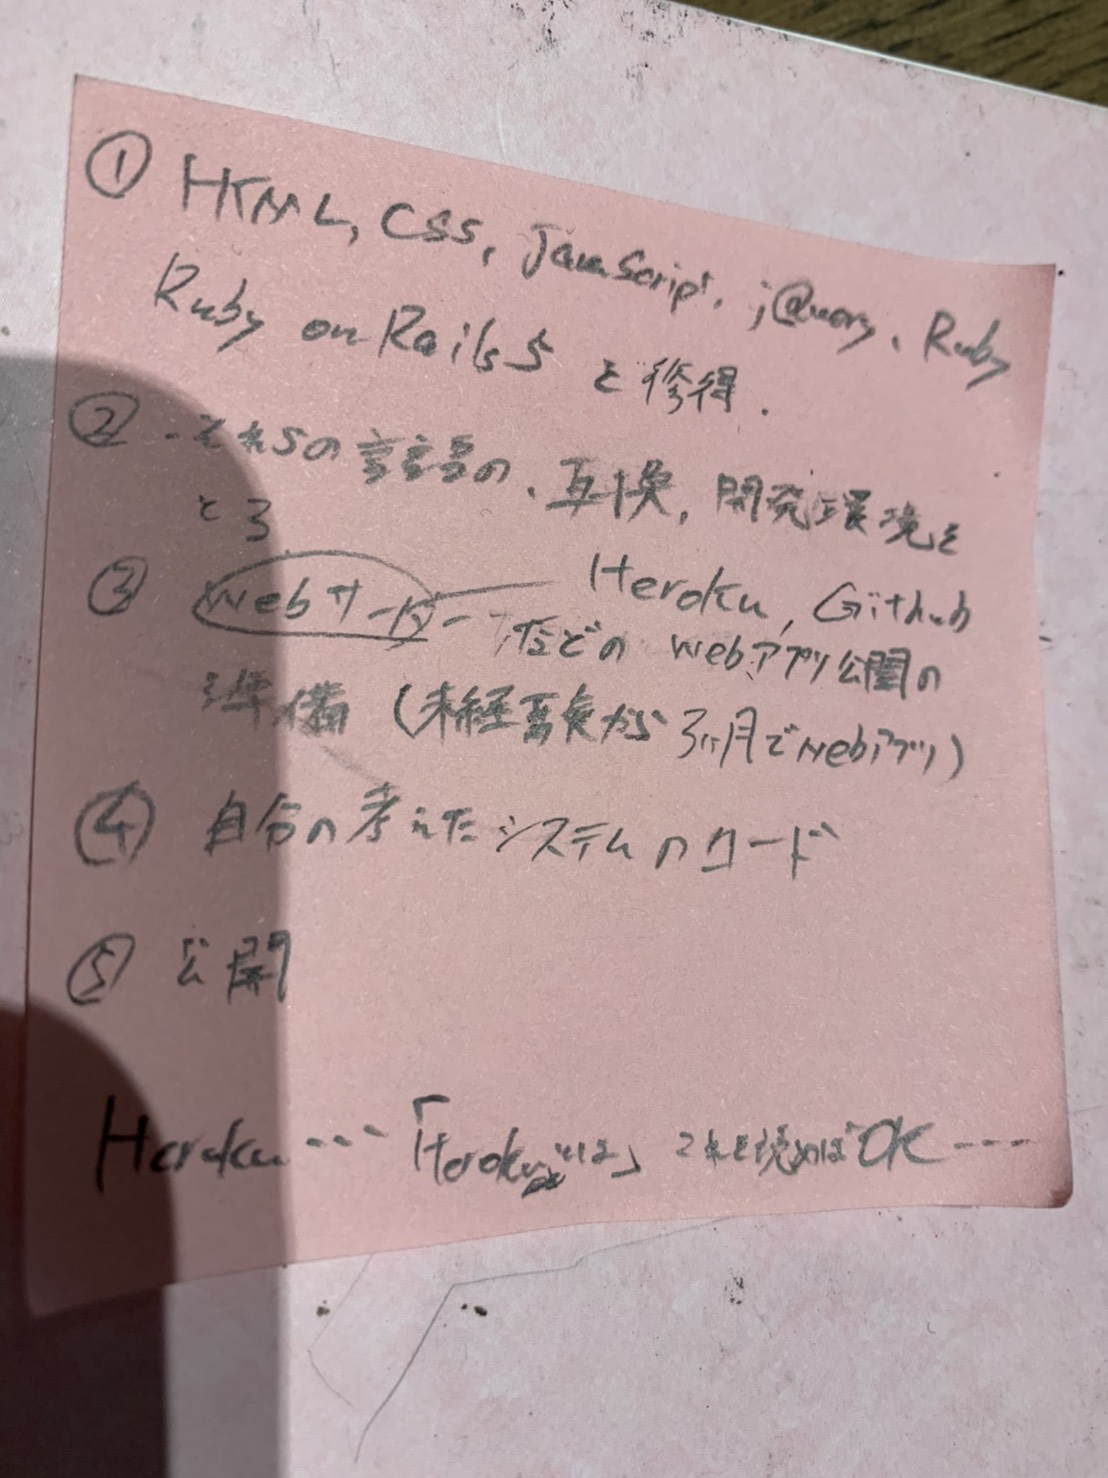 ① HTML, CSS, JavaScript, jQuery, Ruby
Ruby on Rails 5 を修得.
② それらの言語の、互換, 開発環境を
とる
③ Webサーバー Heroku, Github
などの Webアプリ公開の
準備 (未経験から3ヶ月でWebアプリ)
④ 自分の考えたシステムのコード
⑤ 公開
Heroku… 「Heroku とは」 これを読めばOK …